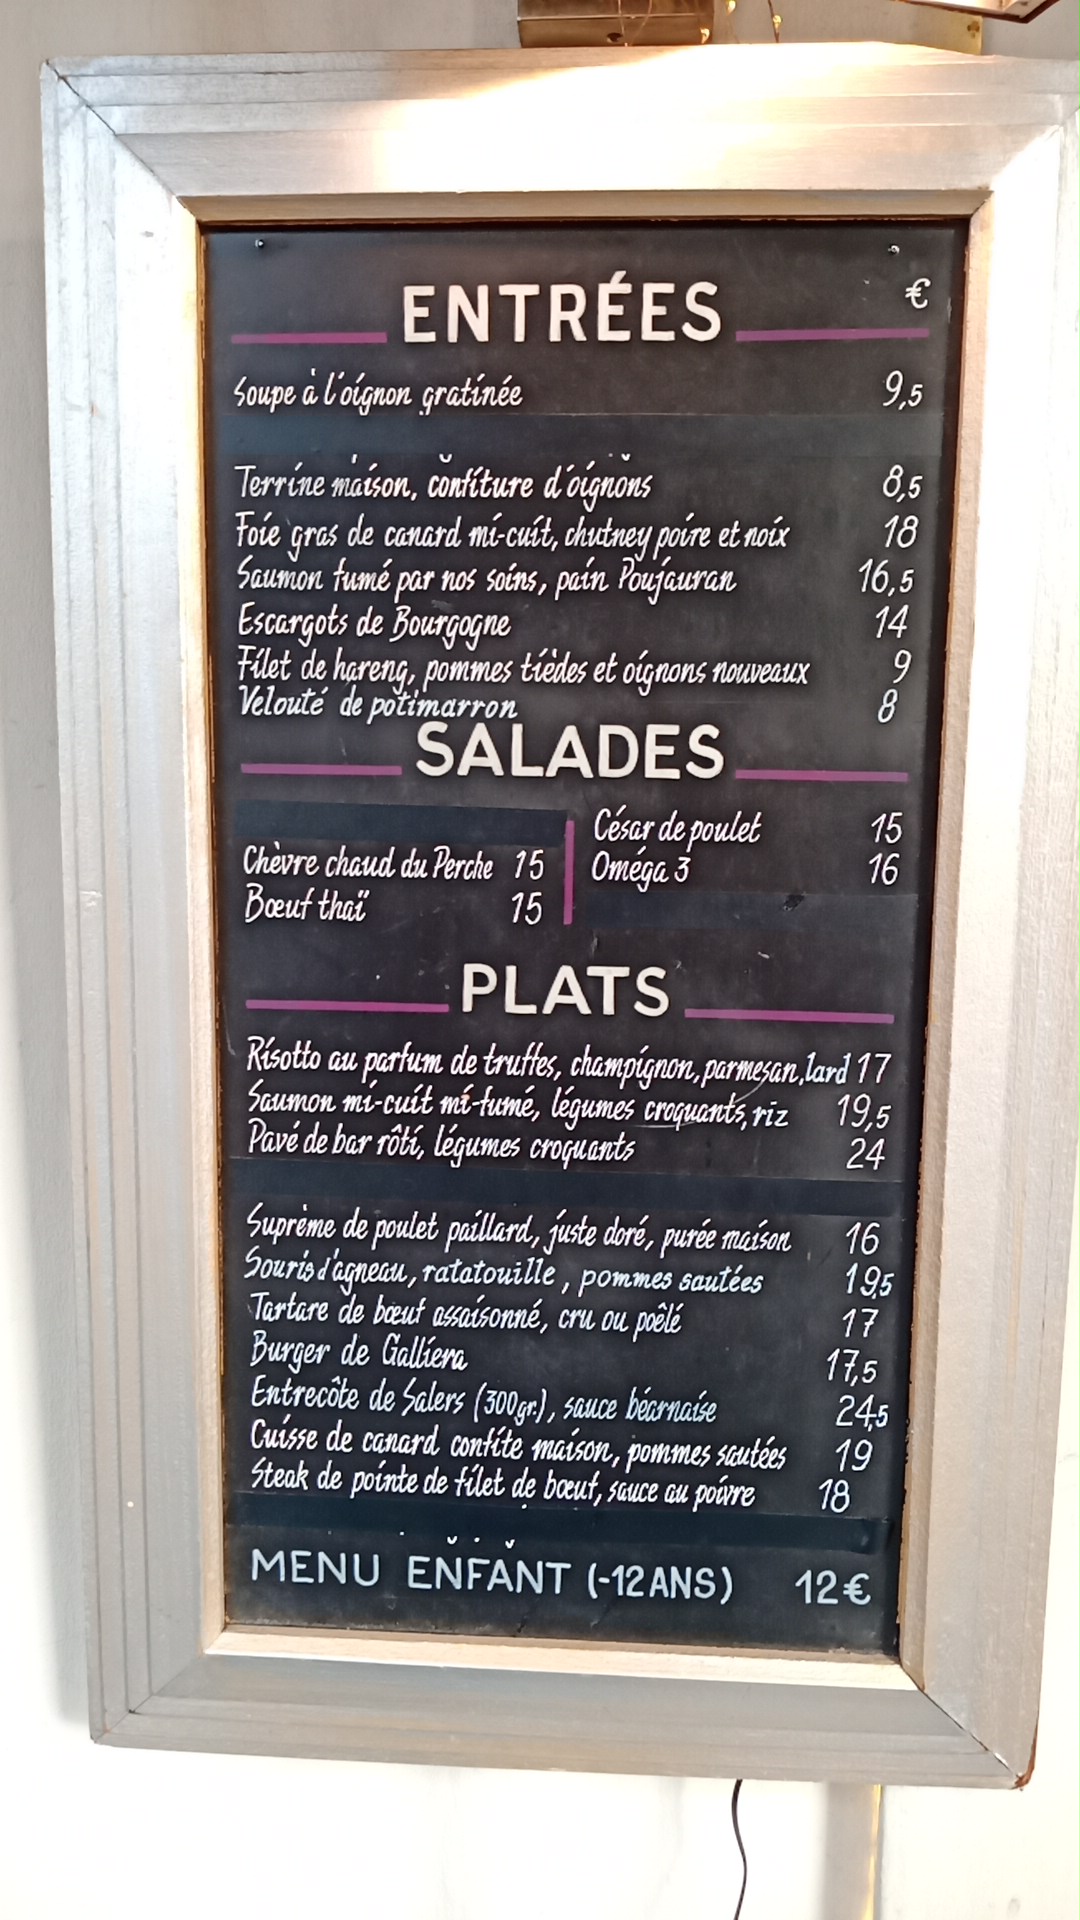 ENTRÉES €
Soupe à l'oignon gratinée 9,5
Terrine maison, confiture d'oignons 8,5
Foie gras de canard mi-cuit, chutney poire et noix 18
Saumon fumé par nos soins, pain Poujauran 16,5
Escargots de Bourgogne 14
Filet de hareng, pommes tièdes et oignons nouveaux 9
Velouté de potimarron 8
SALADES
Chèvre chaud du Perche 15
Bœuf thaï 15
César de poulet 15
Oméga 3 16
PLATS
Risotto au parfum de truffes, champignon, parmesan, lard 17
Saumon mi-cuit mi-fumé, légumes croquants, riz 19,5
Pavé de bar rôti, légumes croquants 24
Suprème de poulet paillard, juste doré, purée maison 16
Souris d'agneau, ratatouille, pommes sautées 19,5
Tartare de bœuf assaisonné, cru ou poêlé 17
Burger de Galliera 17,5
Entrecôte de Salers (300gr.), sauce béarnaise 24,5
Cuisse de canard confite maison, pommes sautées 19
Steak de pointe de filet de bœuf, sauce au poivre 18
MENU ENFANT (-12 ANS) 12€